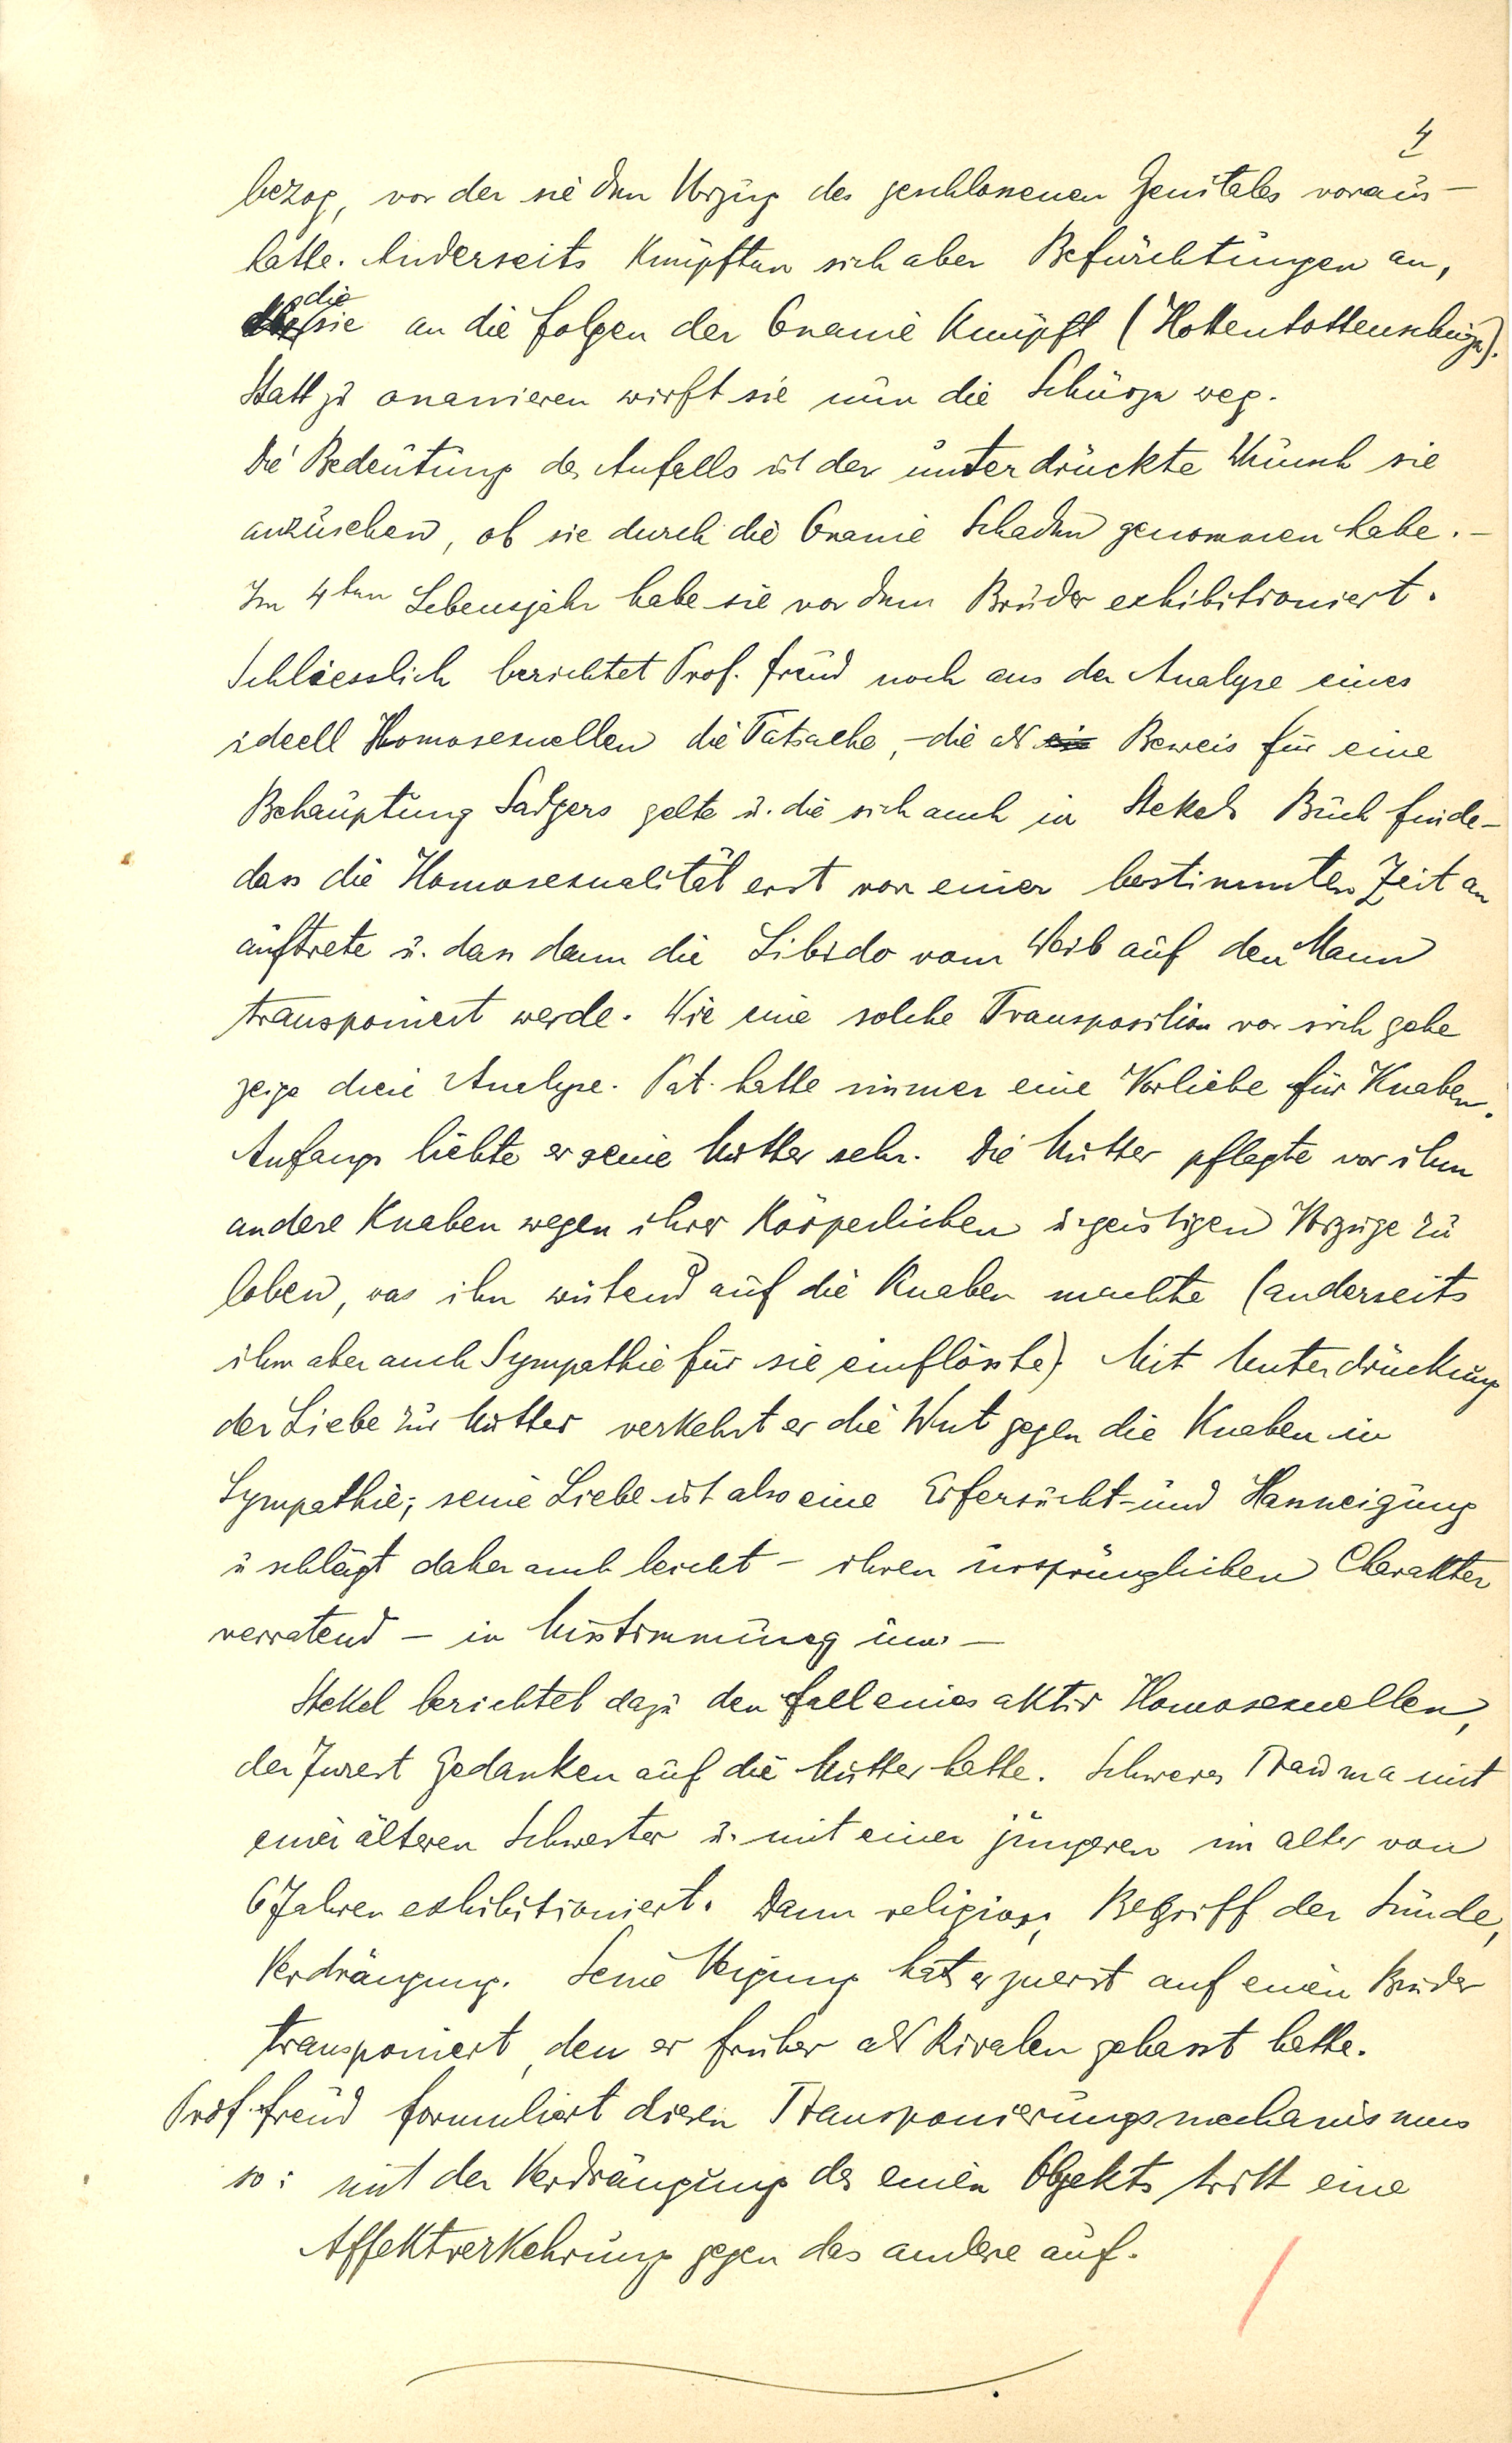 4
bezog, vor der sie den Vorzug des geschlossenen Genitales voraus-
hatte. Anderseits knüpften sich aber Befürchtungen an,
die
sie an die Folgen der Onanie knüpft (Hottentottenschürze).
Statt zu onanieren wirft sie nun die Schürze weg.
Die Bedeutung des Anfalls ist der unterdrückte Wunsch sie
anzusehen, ob sie durch die Onanie Schaden genommen habe. -
Im 4ten Lebensjahr habe sie vor dem Bruder exhibitioniert.
Schliesslich berichtet Prof. Freud noch aus der Analyse eines
ideell Homosexuellen die Tatsache, - die als ein Beweis für eine
Behauptung Sadgers gelte u. die sich auch in Stekels Buch finde -
dass die Homosexualität erst von einer bestimmten Zeit an
auftrete u. dass dann die Libido vom Weib auf den Mann
transponiert werde. Wie eine solche Transposition vor sich gehe
zeige diese Analyse. Pat. hatte immer eine Vorliebe für Knaben.
Anfangs liebte er seine Mutter sehr. Die Mutter pflegte vor ihm
andere Knaben wegen ihrer körperlichen u. geistigen Vorzüge zu
loben, was ihn wütend auf die Knaben machte (anderseits
ihm aber auch Sympathie für sie einflösste). Mit Unterdrückung
der Liebe zur Mutter verkehrt er die Wut gegen die Knaben in
Sympathie; seine Liebe ist also eine Eifersucht- und Hassneigung
u schlägt daher auch leicht - ihren ursprünglichen Charakter
verratend - in Misstimmung um. -
Stekel berichtet dazu den Fall eines aktiv Homosexuellen,
der zuerst Gedanken auf die Mutter hatte. Schweres Trauma mit
einer älteren Schwester u. mit einer jüngeren im Alter von
6 Jahren exhibitioniert. Dann religiös, Begriff der Sünde,
Verdrängung. Seine Neigung hat er zuerst auf einen Bruder
transponiert, den er früher als Rivalen gehasst hatte.
Prof. Freud formuliert diesen Transponierungsmechanismus
so: mit der Verdrängung des einen Objekts tritt eine
Affektverkehrung gegen das andere auf.